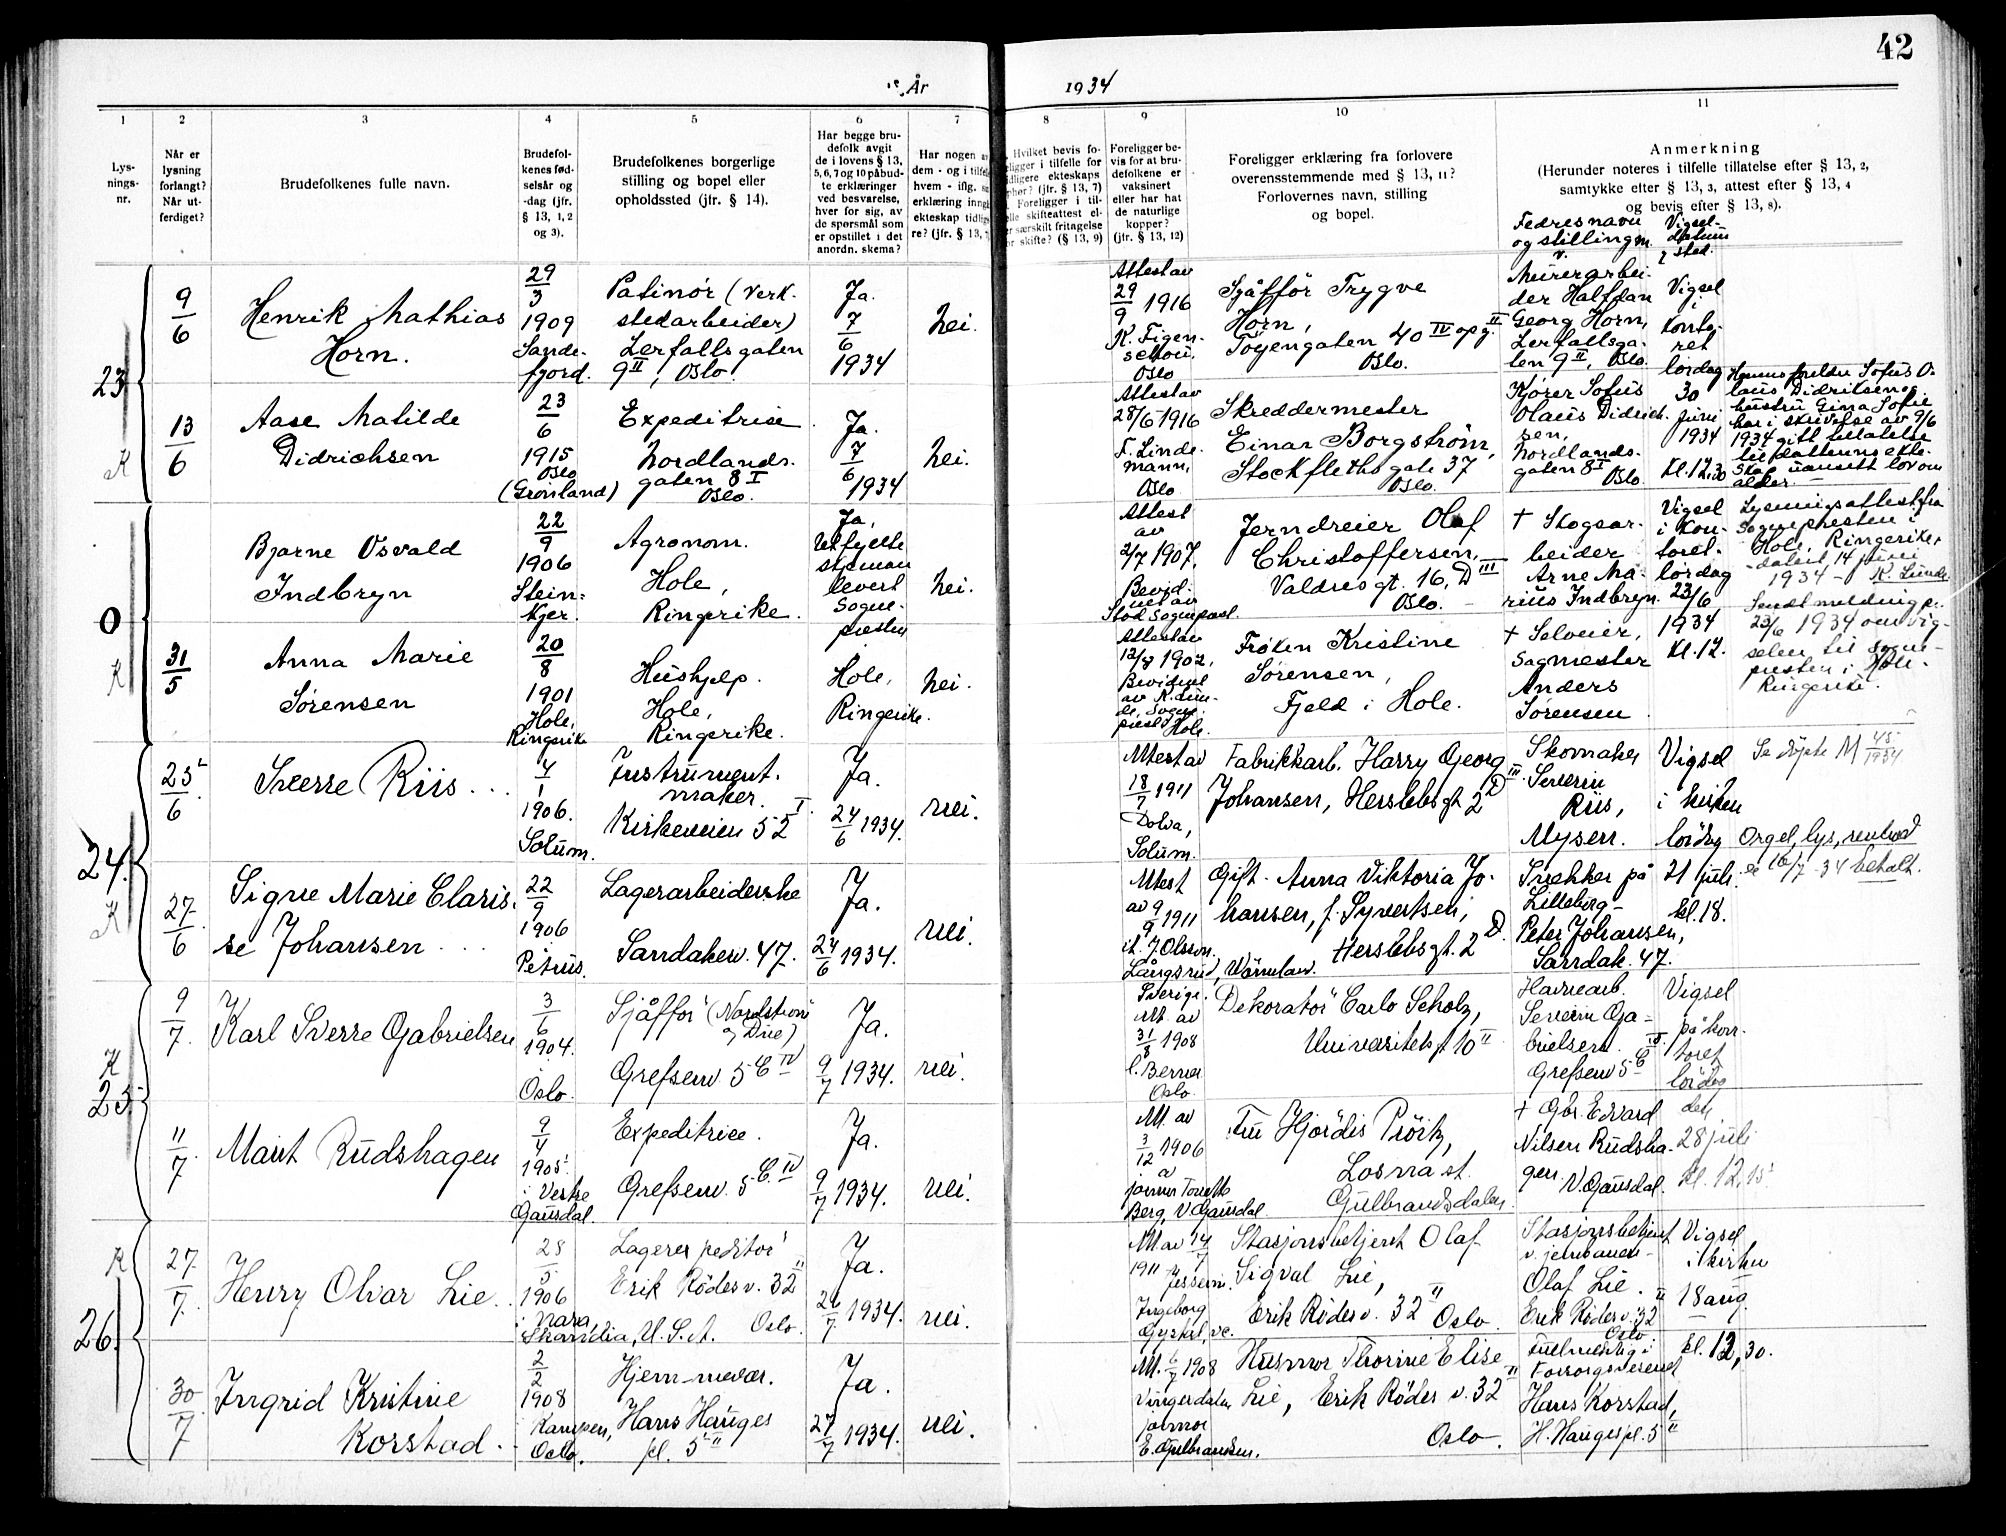 42
År 1934
1
2
3
4
5
6
7
8
9
10
11
Lys-
nings-
nr.
Når er
lysning
forlangt?
Når ut-
ferdiget?
Brudefolkenes fulle navn.
Brudefol-
kenes fød-
selsår og
-dag (jfr.
§ 13, 1, 2
og 3).
Brudefolkenes borgerlige
stilling og bopel eller
opholdssted (jfr. § 14).
Har begge bru-
defolk avgit
de i lovens § 13,
5, 6, 7 og 10 påbud-
te erklæringer
ved besvarelse,
hver for sig, av
de spørsmål som
er opstillet i det
anordn. skema?
Har nogen a
dem - og i tilfel
hvem - iflg. s
erklæring inng
ekteskap tidlig
re? (jfr. § 13,
Hvilket bevis fo-
eligger i tilfelle for
idligere ekteskaps
phør? (jfr. § 13, 7)
Foreligger i til-
elle skifteattest el-
er særskilt fritagelse
or skifte? (§ 13, 9)
Foreligger be-
vis for at bru-
defolkene er
vaksinert
eller har hat
de naturlige
kopper?
(jfr. § 13, 12)
Foreligger erklæring fra forlovere
overensstemmende med § 13, 11?
Forlovernes navn, stilling
og bopel.
Anmerkning
(Herunder noteres i tilfelle tillatelse efter § 13, 2,
samtykke efter § 13, 3, attest efter § 13, 4
og bevis efter § 13, 8).
Fedres navn
og stilling m.
v.
Vigsel-
datum
& sted.
23
9/6
Henrik Mathias
Horn.
29/3
1909
Sande-
fjord.
Patinør (verk-
stedarbeider)
Lerfallsgaten
9 II, Oslo.
Ja.
7/6
1934
Nei.
Attest av
29/9 1916
K. Figen-
schou.
Oslo
Sjåffør Trygve
Horn,
Tøyengaten 40 IV opg. II
Oslo.
Murerarbei-
der Halfdan
Georg Horn,
Lerfallsga-
ten 9 II, Oslo.
Vigsel
i
Konto-
ret
lørdag
30
Juni
1934
Kl. 12,30
K
13/6
Aase Matilde
Didrichsen
23/6
1915
Oslo
(Grønland)
Expeditrise
Nordlands-
gaten 8 I
Oslo.
Ja.
7/6
1934
Nei.
Attest av
28/6 1916
F. Linde-
mann,
Oslo
Skreddermester
Einar Borgstrøm,
Stockfleths gate 37
Oslo.
Kjører Sofus
Olaus Didrich-
sen,
Nordlands-
gaten 8 I
Oslo.
Hennes foreldre Sofus O-
laus Didriksen og
hustru Gina Sofie
har i skrivelse av 9/6
1934 gitt tillatelse
til datterens ekte-
skap uansett lov om
alder. -
0
K
Bjarne Osvald
Indbryn
22/9
1906
Stein-
kjer.
Agronom.
Hole,
Ringerike.
Ja,
Utfylte
skjemaer
levert
Sogne-
presten
Nei.
Attest
av
2/7 1907.
Bevid-
net av
Stod Sognepast.
Jerndreier Olaf
Christoffersen,
Valdresgt. 16, D III
Oslo. -
† Skogsar-
beider
Arne Ma-
rius Indbryn.
Vigsel
i Kon-
toret.
lørdag
23/6
1934
Kl. 12.
Lysningsattest fra
Sognepresten i
Hole, Ringerike,
- datert 14 juni
1934 - K. Lunde
Sendt melding pr.
23/6 1934 om vig-
selen til sogne-
presten i Hole.
Ringerike.
31/5
Anna Marie
Sørensen
20/8
1901
Hole,
Ringerike
Hushjelp.
Hole,
Ringerike.
Hole,
Ringerike.
Nei.
Attest av
12/8 1902.
Bevidnet
av K. Lun-
de, Sogne-
prest i Hole.
Frøken Kristine
Sørensen,
Fjeld i Hole.
† Selveier,
Sagmester
Anders
Sørensen
24.
K
25/6
Sverre Riis
4/1
1906.
Solum.
Instrument-
maker.
Kirkeveien 52 I
Ja.
24/6 1934.
nei.
Attest av
18/7 1911
Dolva,
Solum.
Fabrikkarb. Harry Georg
Johansen, Herslebsgt 2 D III
Skomaker
Severin
Riis,
Mysen.
Vigsel
i kirken
lørdag
21 juli.
kl. 18.
Se døpte M 45/1934
Orgel, lys, renhold
er 16/7 -34 betalt.
27/6
Signe Marie Claris-
se Johansen
22/9
1906
Petrus.
Lagerarbeiderske
Sandakerv. 47.
Ja.
24/6 1934.
nei.
Attest
av 9/9 1911
J. Olsson.
Långsrud, Wärmland.
Sverige.
Gift. Anna Viktoria Jo-
hansen, f. Syvertsen,
Herslebsgt. 2 D.
Snekker på
Lilleborg -
Peter Johansen,
Sandak. 47.
K
25.
9/7
Karl Sverre Gabrielsen
3/6
1904.
Oslo.
Sjåffør (Nordstrøm
& Due)
Grefsenv. 5 C IV
Ja.
9/7 1934.
nei.
Att. av
31/8 1908
C. Berner
Oslo.
Dekoratør Carlo Scholz,
Universitetsgt 10 II
Havnearb.
Severin Ga-
brielsen.
Grefsenv 5 C IV
Vigsel
på kon-
toret
lørdag
den
28 juli
kl. 12,15
11/7
Marit Rudshagen
9/4
1905
i Vestre
Gausdal.
Expeditrice.
Grefsenv. 5 C. IV
Ja.
9/7 1934.
nei.
Att. av
3/12 1906
av
jormor
Berg, V Gausdal.
Fru Hjørdis Prøitz,
Losna st.
Gulbrandsdalen
† Gbr. Edvard
Nilsen Rudsha-
gen. V. Gausdal.
K
26.
27/7
Henry Olvar Lie.
28/5
1906
i Nara
Skandia, U. S. A.
Lagerexpeditør
Erik Rödesv. 32 II
Oslo.
Ja.
26/7 1934.
nei.
Att av 14/7
1911
Ingeborg
Stasjonsbetjent Olaf
Sigval Lie,
Erik Rödesv. 32 II Oslo.
Stasjonsbetjent
v. jernbanen -
Olaf Lie.
Erik Rödesv. 32 II
Oslo.
Vigsel
i kirken
18 aug
kl. 12,30.
30/7
Ingrid Kristine
Korstad.
2/2
1908
i Kampen,
Oslo.
Hjemmevær.
Hans Hauges
pl. 5 II
Ja.
27/7 1934.
nei.
Att. 6/7 1908
Vingerdalen
jormor
E. Gulbrandsen.
Husmor Thorine Elise
Lie, Erik Rödes v. 32 II
Oslo.
Fullmektig i
Forsorgsvesenet
Hans Korstad,
H. Haugespl. 5 II